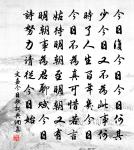 今日復今日今日何其
少今日又不為此事何
時了人生百年幾今日
今日不為真可惜若言
姑待明朝至明朝又有
明朝事為君聊賦今日
詩努力請從今日始
文嘉今日歌